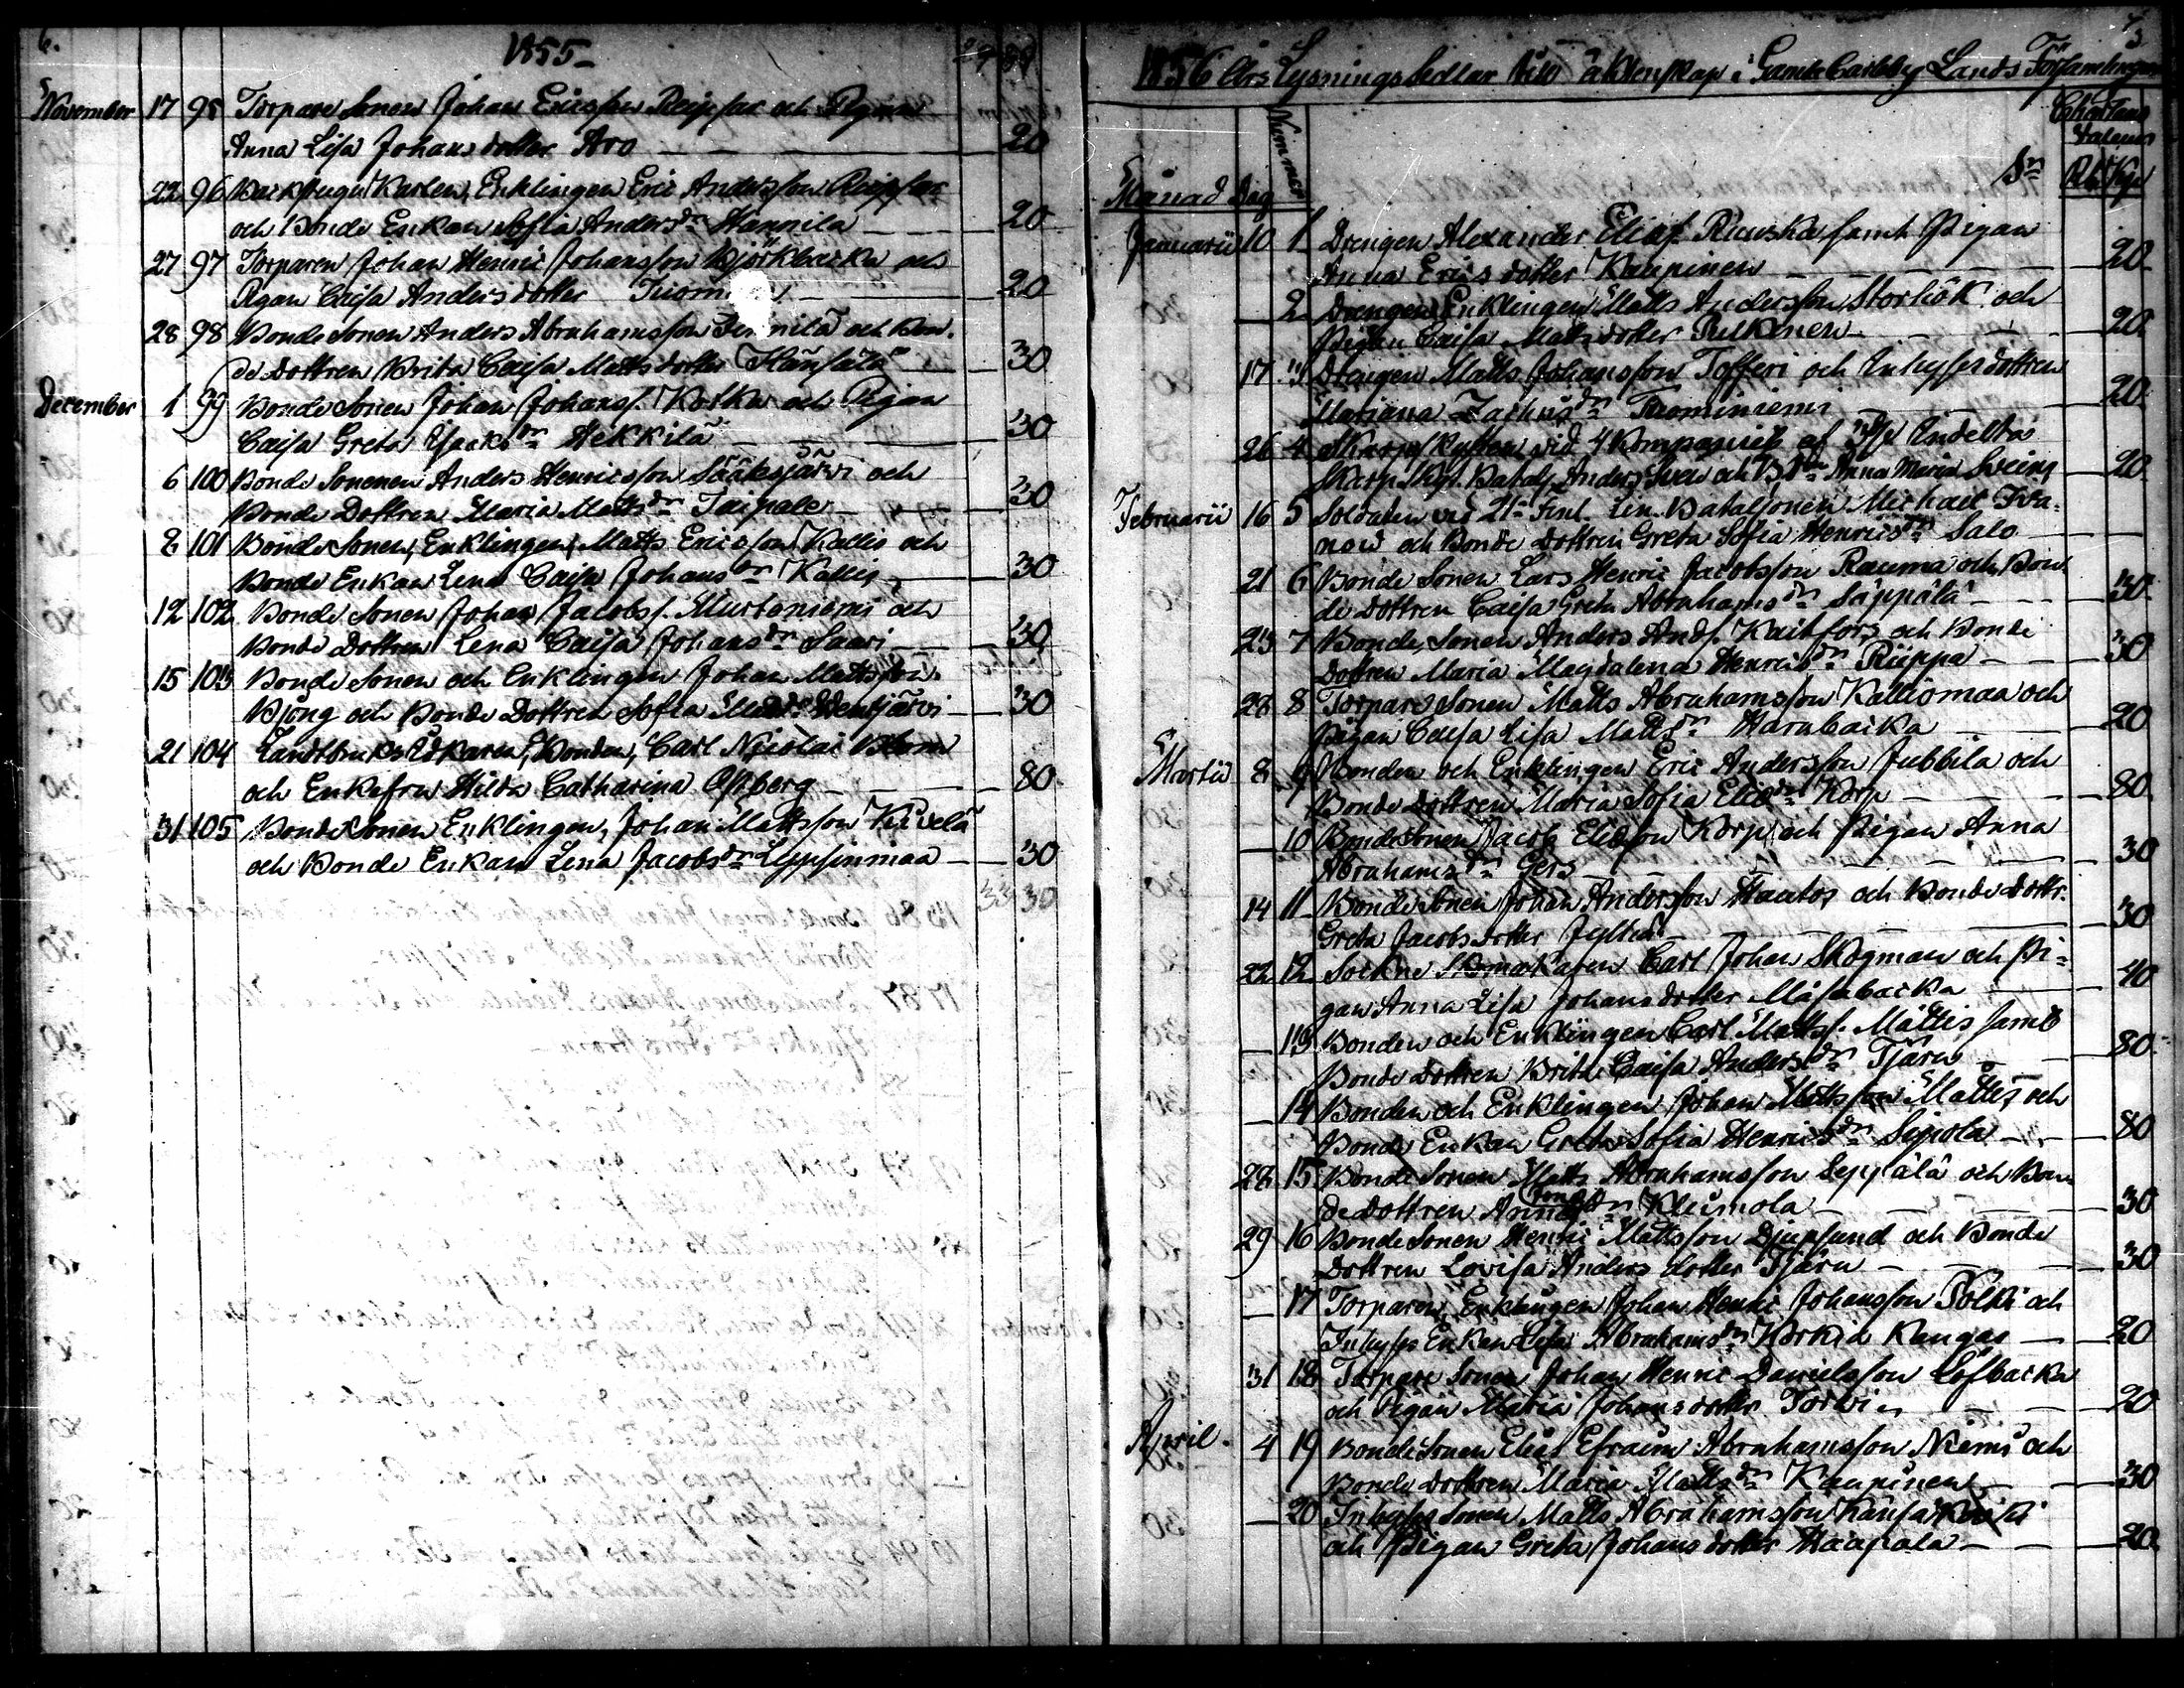 6.
1855
29 89
November 17 95 Torpare Sonen Johan Ericsson Reipsar och Pigan
Anna Lisa Johans dotter Aro 20
22 96 Karlen, Enklingen Eric Andersson Reipsar
och Bonde Enkan Sofia Anders dr Hannila 20
27 97 Torparen Johan Henric Johansson Björkbacka och
Pigan Caisa Andersdotter 20
28 98 Bonde Sonen Anders Abrahamsson och Bon-
de Dottren Brita Caisa Mattsdotter 30
December 1 99 Bonde Sonen Johan Johanss. Korka och Pigan
Caisa Greta Isacks dr Hekkilä 30
6 100 Bonde Sonenen Anders Henricsson Sääksjärvi och
Bonde Dottren Maria Matts dr Taipale 30
8 101 Bonde Sonen, Enklingen, Matts Ericsson Kallis och
Bonde Enkan Lena Caisa Johans dr Kallis 30
12 102 Bonde Sonen Johan Jacobss. Murtoniemi och
Bonde Dottren Lena Caisa Johans dr Saari 30
15 103 Bonde Sonen och Enklingen Johan Mattsson
Bjong och Bonde Dottren Sofia 30
21 104 Landtbruks Idkaren, Bonden, Carl Nicolai Blom
och Enkefru Hilda Catharina Ostberg 80
31 105 Bonde Sonen Enklingen, Johan Mattsson Kivelä
och Bonde Enkan Lena Jacobs dr Leppsinmaa 30
33 30
1856 Års Lysnings Sedlar till äktenskap i Gamle Carleby Lands Församlingen
Månad Dag Nummer Sr Rb Kp
Januarii 10 1 Drengen Alexander Eliass. Riuska samt Pigan
Anna Ericsdotter Kaupinen 20
2 Drengen Enklingen Matts Andersson Storhök och
Pigan Caisa Mattsdotter Pulkinen 20
17 3 Drengen Matts Johansson Tofferi och Inhyses dottren
Mariana Zachris dr Tuominiemi 20
26 4 Skarpskytten vid 4 Kompaniet af Indelta
Skarp. Skyt. Batalj. Anders och B. Dn Anna Maria 20
Februarii 16 5 Soldaten vid 21 Finl. Lin. Bataljonen Michail Iva-
now och Bonde Dottren Greta Sofia Henrics dr Salo
21 6 Bonde Sonen Lars Henric Jacobsson Rauma och Bon-
de dottren Caisa Greta Abrahams dr Säppälä 30
23 7 Bonde Sonen Anders Ands. Kaitfors och Bonde
Dottren Maria Magdalena Henrics dr Riippa 30
28 8 Torpare Sonen Matts Abrahamsson Kalliomaa och
Pigan Caisa Lisa Matts dr Harabacka 20
Martii 8 9 Bonden och Enklingen Eric Andersson Jubbila och
Bonde Dottren Maria Sofia Elias dr Korp 80
10 Bonde Sonen Jacob Eliasson Korp och Pigan Anna
Abrahams dr Gers 30
14 11 Bonde Sonen Johan Andersson Hautos och Bonde Dottr.
Greta Jacobsdotter 30
22 12 Sockne Skomakaren Carl Johan Skogman och Pi-
gan Anna Lisa Johansdotter Måsabacka 40
13 Bonden och Enklingen Carl Mattss. Mattis samt
Bonde Dottren Brita Caisa Anders dr Tjäru 80
14 Bonden och Enklingen Johan Mattsson Mattis och
Bonde Enkan Greta Sofia Henrics dr Sipola 80
28 15 Bonde Sonen Matts Abrahamsson Seppälä och Bon-
de dottren Anna Jonas dr Kleimola 30
29 16 Bonde Sonen Henric Mattsson Djupsund och Bonde
Dottren Lovisa Anders dotter Tjäru 30
17 Torparen Enklingen Johan Henric Johansson Pölki och
Inhyses Enkan Lisa Abrahams dr Korkia Kangas 20
31 18 Torpare Sonen Johan Henric Danielsson Löfbacka
och Pigan Maria Johansdotter Torvi 20
April. 4 19 Bonde Sonen Elias Efraim Abrahamsson Niemi och
Bonde dottren Maria Matts dr Kaupinen 30
20 Inhyses Sonen Matts Abrahamsson
och Pigan Greta Johans dotter Haapala 20